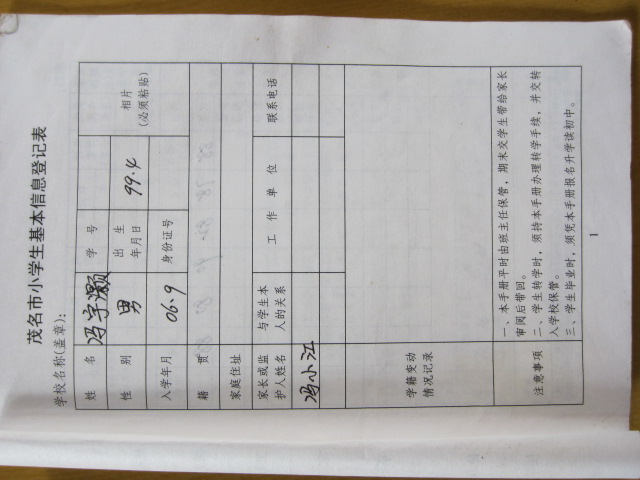 茂名市小学生基本信息登记表
学校名称(盖章):
姓 名 冯宇灏 学 号 相片
(必须粘贴)
性 别 男 出 生
年月日 99.4
入学年月 06.9 身份证号
籍 贯
家庭住址
家长或监
护人姓名 与学生本
人的关系 工 作 单 位 联系电话
冯小江
学籍变动
情况记录
注意事项
一、本手册平时由班主任保管，期末交学生带给家长
审阅后带回。
二、学生转学时，须持本手册办理转学手续，并交转
入学校保管。
三、学生毕业时，须凭本手册报名升学读初中。
1